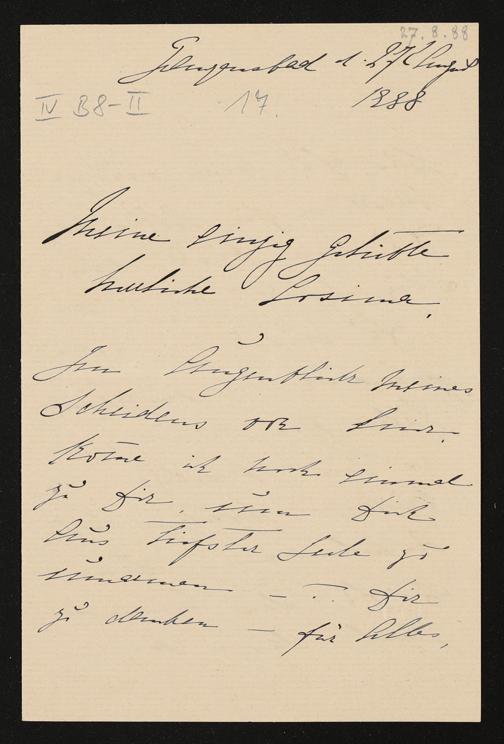 27.8.88
d. 27t August
1888
IV B8-II 17.
Meine einzig geliebte
herrliche Cosima,
Im Augenblick meines
Scheidens von hier
kom̄e ich noch einmal
zu Dir, um Dich
aus tiefster Seele zu
umarmen – Dir
zu danken – für Alles,